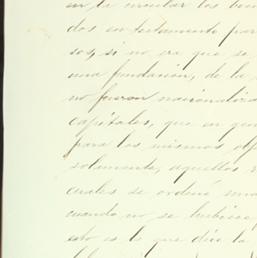 en la circular los bien
dos en testamento par
sos, si no era que se
una fundación, de la
no fueron nacionaliza
capitales, que en gen
para los mismos obj
solamente, aquellos
cuales se ordenó una
cuando no se hubiese
esto es lo que dice la